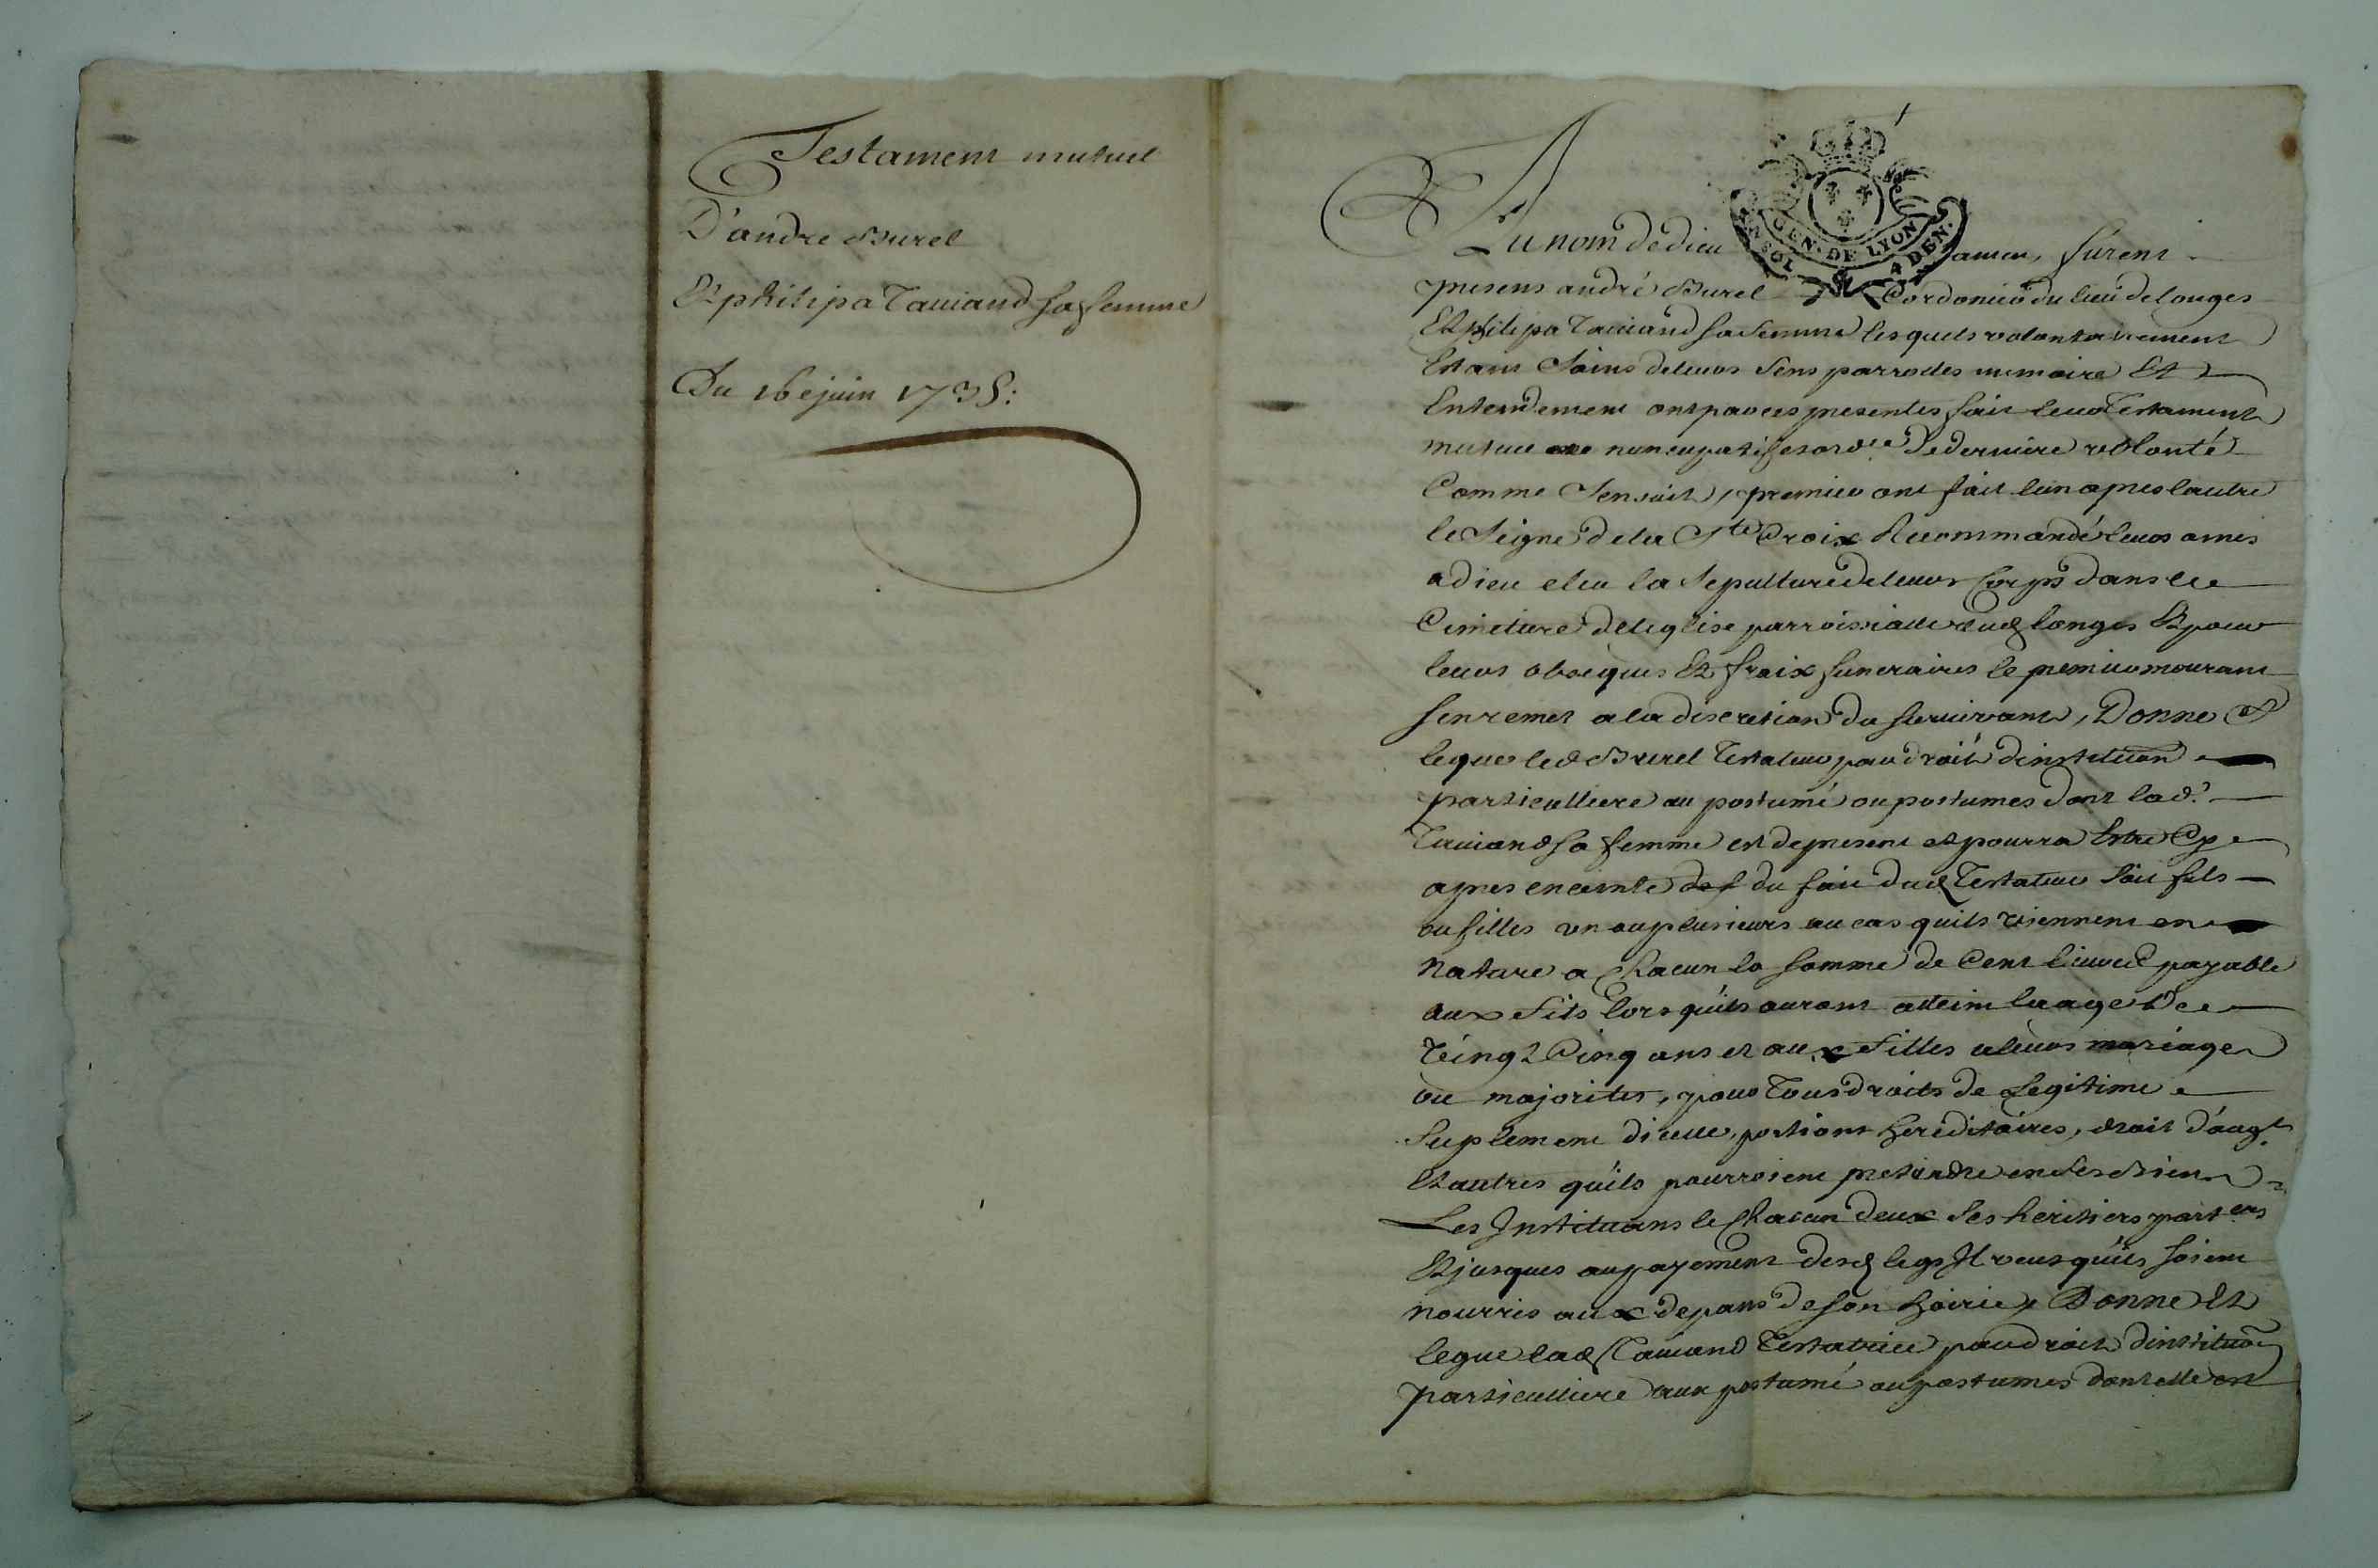 Testament mutuel
D'andre Burel
Et philipa Tauiand sa femme
Du 16e juin 1735:
GEN. DE LYON
UN SOL 4 DEN.
Au nom de dieu amen, furent
presens andré Burel Cordonier du lieu de longes
Et philipa Tauiand sa femme lesquels volontairement
Estans Sains de leurs Sens parrolles memoire Et
Entendement ont par ces presentes fait leur Testament
mutuel nuncupatif et ord.ce de derniere volonté
Comme Sensuit, premier ont fait lun apres lautre
le Seigne de la Ste Croix Recommandé leurs ames
a dieu eleu la Sepulture de leurs Corps dans le
Cimetiere de leglise parroissialle dud longes Et pour
leurs obseques Et fraix funeraires le premier mourant
sen remet a la discretion du survivant, Donne &
legue led Burel Testateur par droit dinstitution
particulliere au postumé ou postumes dont lad.
Tauiand sa femme est de present et pourra Estre Cy
apres enceinte du fait dud Testateur Soit fils
ou filles un ou plusieurs au cas quils viennent en
nature a Chacun la somme de Cent livres payable
aux fils lorsquils auront atteint laage De
Vingt Cinq ans et aux filles a leurs mariages
ou majorités, pour Tous droits de Legitime
Suplement dicelle, portions hereditaires, droit d'augt
Et autres quils pourroient pretendre en ses Biens
Les Instituans le Chacun deux Ses heritiers part ers
Et jusques au payement desd legs Il veut quils soient
nourris aux depans de son hoirie, Donne Et
legue lad Tauiand Testatrice par droit dinstituon
particulliere aux postumé ou postumes dont elle est